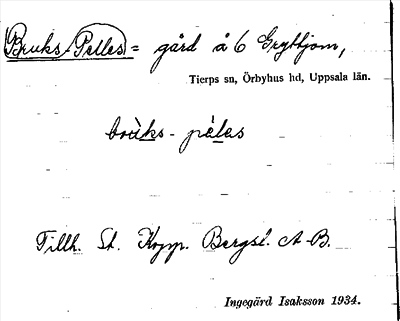 Bruks-Pelles = gård å 6 Gryttjom,
Tierps sn, Örbyhus hd, Uppsala län.
brùks - pèles
Tillh. St. Kopp. Bergsl. A-B.
Ingegärd Isaksson 1934.